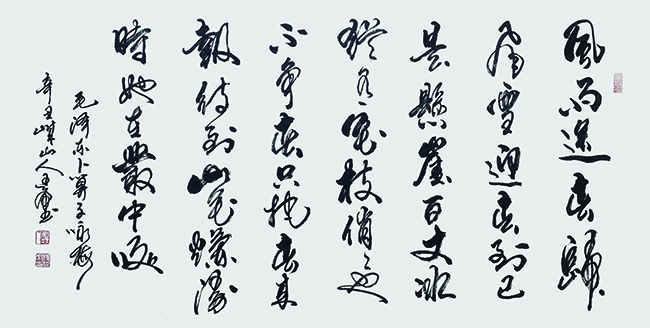 風雨送春歸
飛雪迎春到已
是懸崖百丈冰
猶有花枝俏々也
不争春只把春来
報待到山花爛漫
時她在叢中咲
毛泽东卜算子咏梅
辛丑山人王书